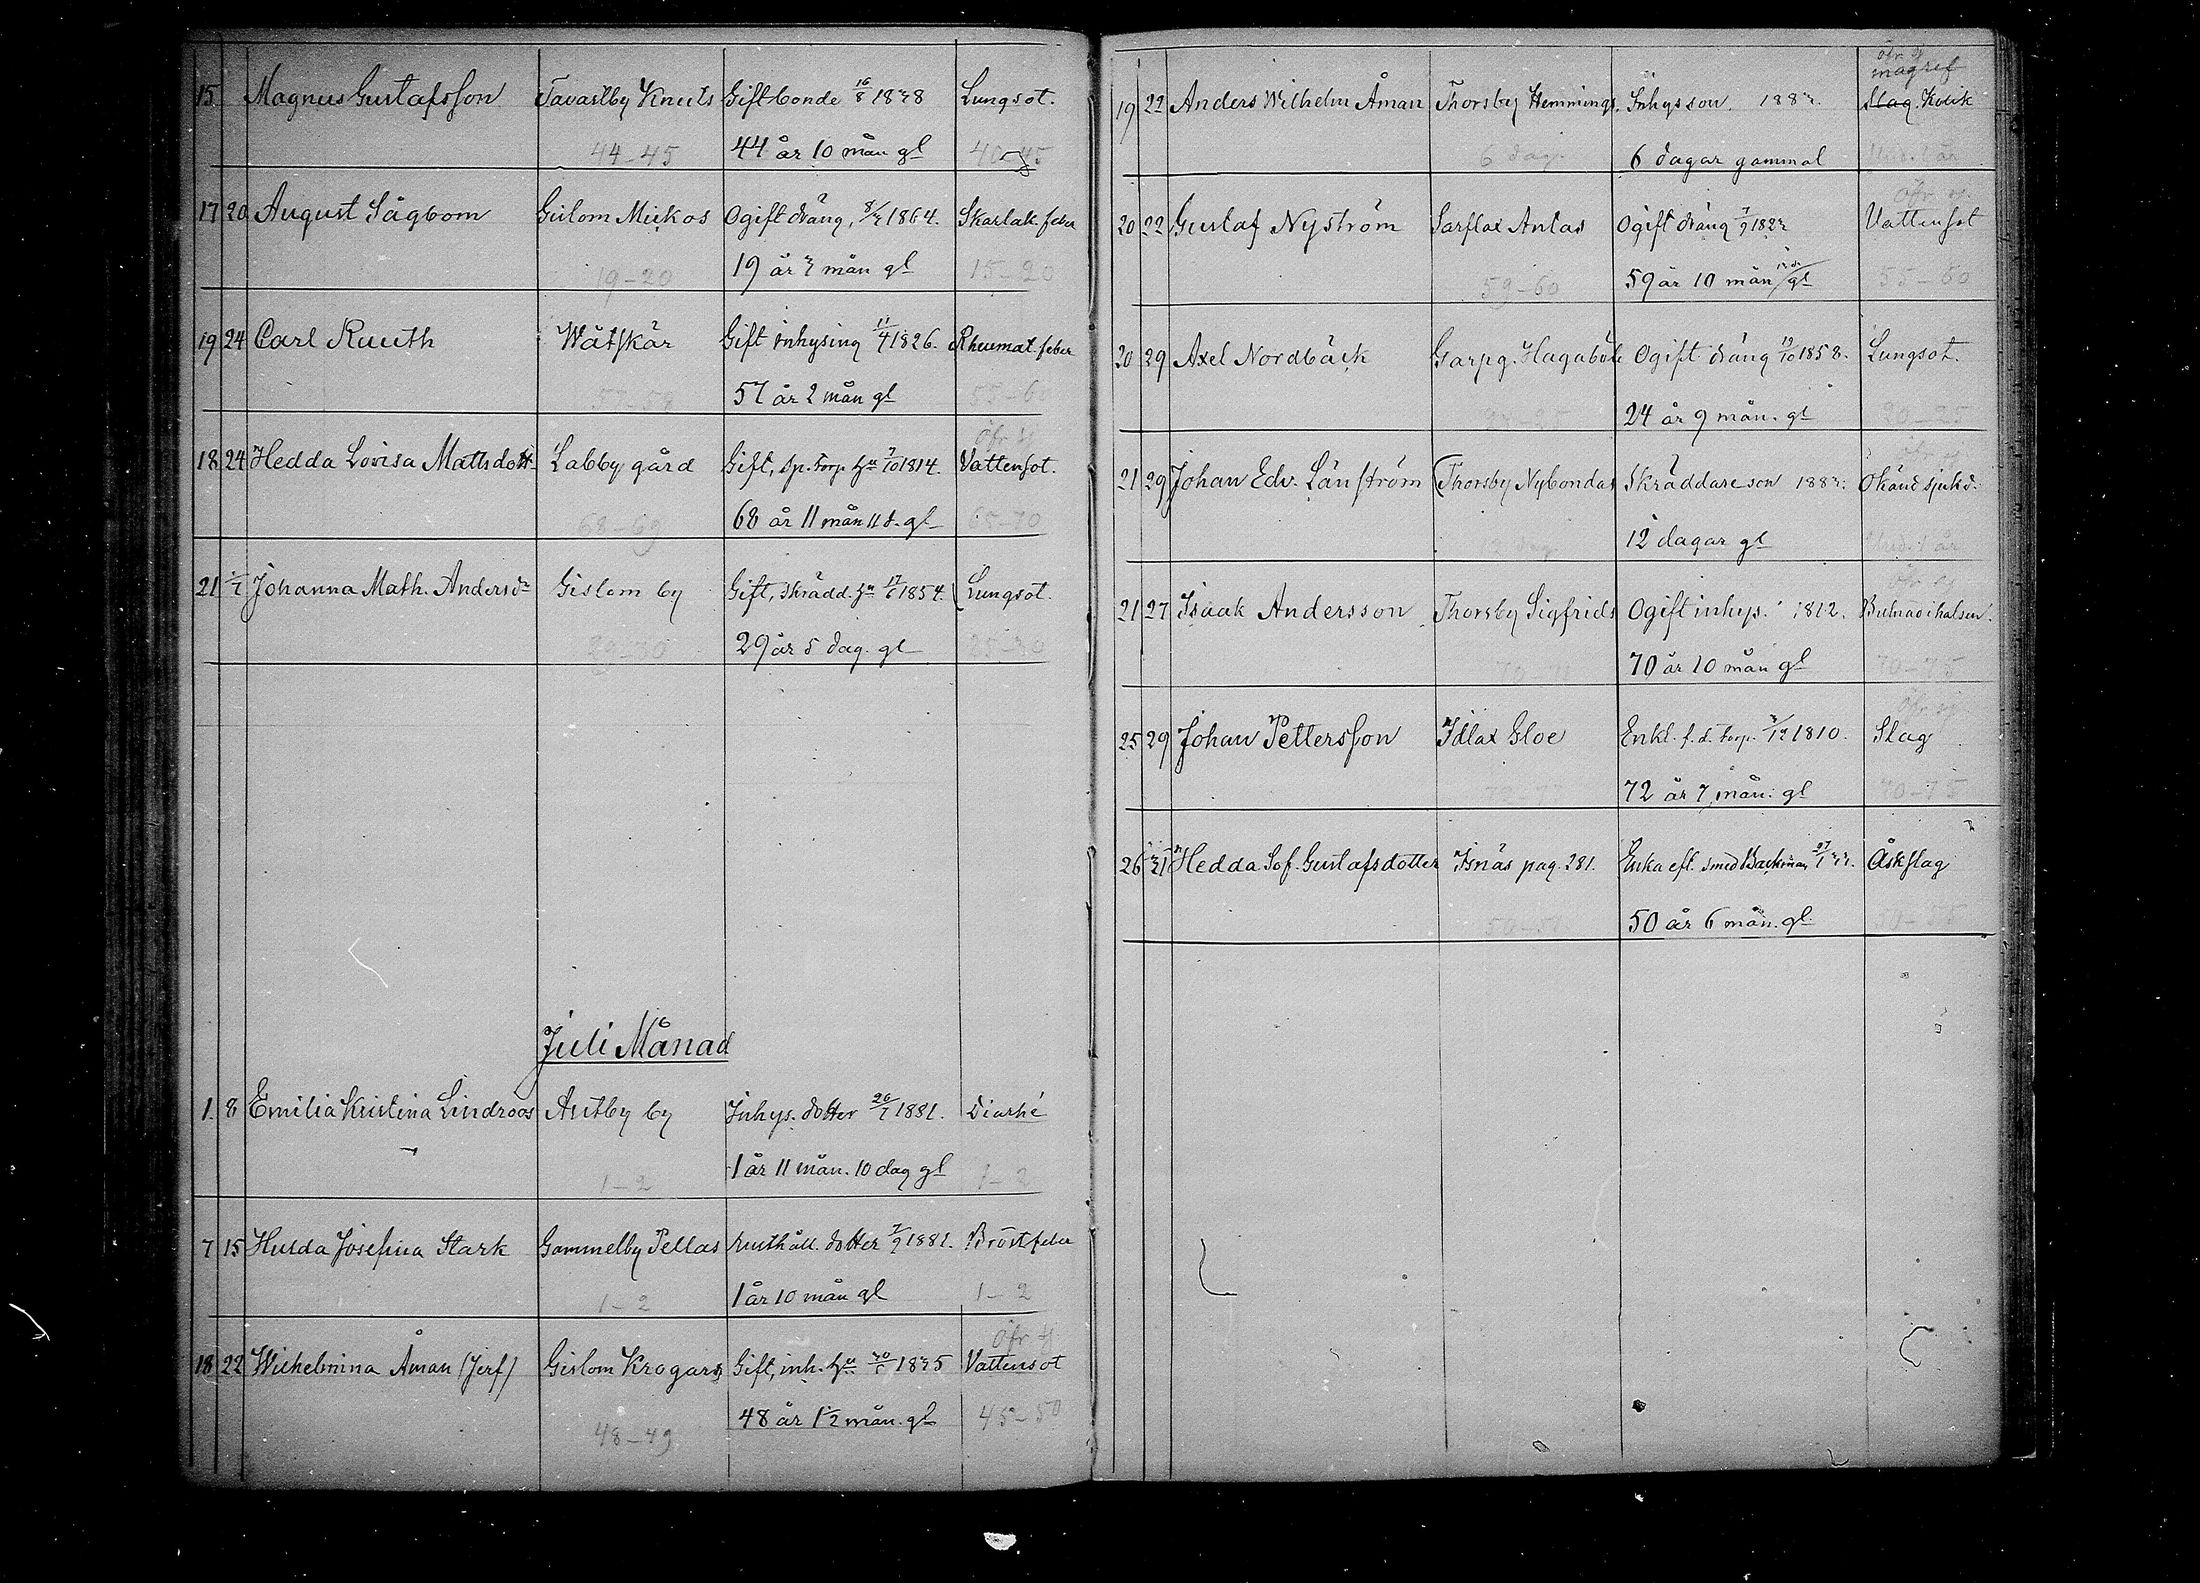 15 Magnus Gustafsson Tavastby Knuts Gift bonde 16/8 1838 Lungsot.
44-45 44 år 10 mån gl 40-45
17 20 August Sågbom Gislom Mickos Ogift dräng, 8/3 1864. Skarlak. feber
19-20 19 år 3 mån gl 15-20
19 24 Carl Ruuth Wåtskär Gift inhysing 11/4 1826. Rheumat. feber
57-58 57 år 2 mån gl 55-60
öfr sj
18 24 Hedda Lovisa Mattsdott. Labby gård Gift, sp. torp. hu 7/10 1814. Vattensot.
68-69 68 år 11 mån 11 d. gl 65-70
21 1/7 Johanna Math. Andersdr Gislom by Gift, skrädd. hu 17/6 1854. Lungsot.
29-30 29 år 5 dag. gl 25-30
Juli Månad
1. 8 Emilia Kristina Lindroos Antby by Inhys. dotter 20/7 1881. Diarhé
1-2 1 år 11 mån. 10 dag gl 1-2
7 15 Hulda Josefina Stark Gammelby Pellas dotter 7/9 1881. Bröstfeber
1-2 1 år 10 mån gl 1-2
öfr sj
18 22 Wilhelmina Åman (Jerf) Gislom Krogars Gift, inh. hu 30/5 1835 Vattensot
48-49 48 år 1 1/2 mån. gl 45-50
öfr sj
magref
19 22 Anders Wilhelm Åman Thorsby Hemmings. Inhysson 1883. Slag. Kolik
6 dag. 6 dagar gammal Und. 1 år
öfr sj.
20 22 Gustaf Nyström Sarflax Antas Ogift dräng 7/9 1823 Vattensot
59-60 59 år 10 mån gl 55-60
20 29 Axel Nordbäck Garpg. Hagaböle Ogift dräng 19/10 1858. Lungsot.
24 år 9 mån. gl 20-25
öfr sj
21 29 Johan Edv. Länström Thorsby Nybondas Skräddareson 1883. Okänd sjukd.
12 dag 12 dagar gl Und. 1 år
öfr sj
21 27 Isaak Andersson Thorsby Sigfrids Ogift inhys. 1812. Bulnad i halsen.
70-71 70 år 10 mån gl 70-75
öfr sj
25 29 Johan Pettersson Idlax Gloe Enkl. f.d. torp. 3/12 1810. Slag
72 år 7 mån. gl 70-75
26 31 Hedda Sof. Gustafsdotter Isnäs pag. 281. Enka eft. smed Backman 27/1 33. Åskslag
50-51 50 år 6 mån. gl. 50-55